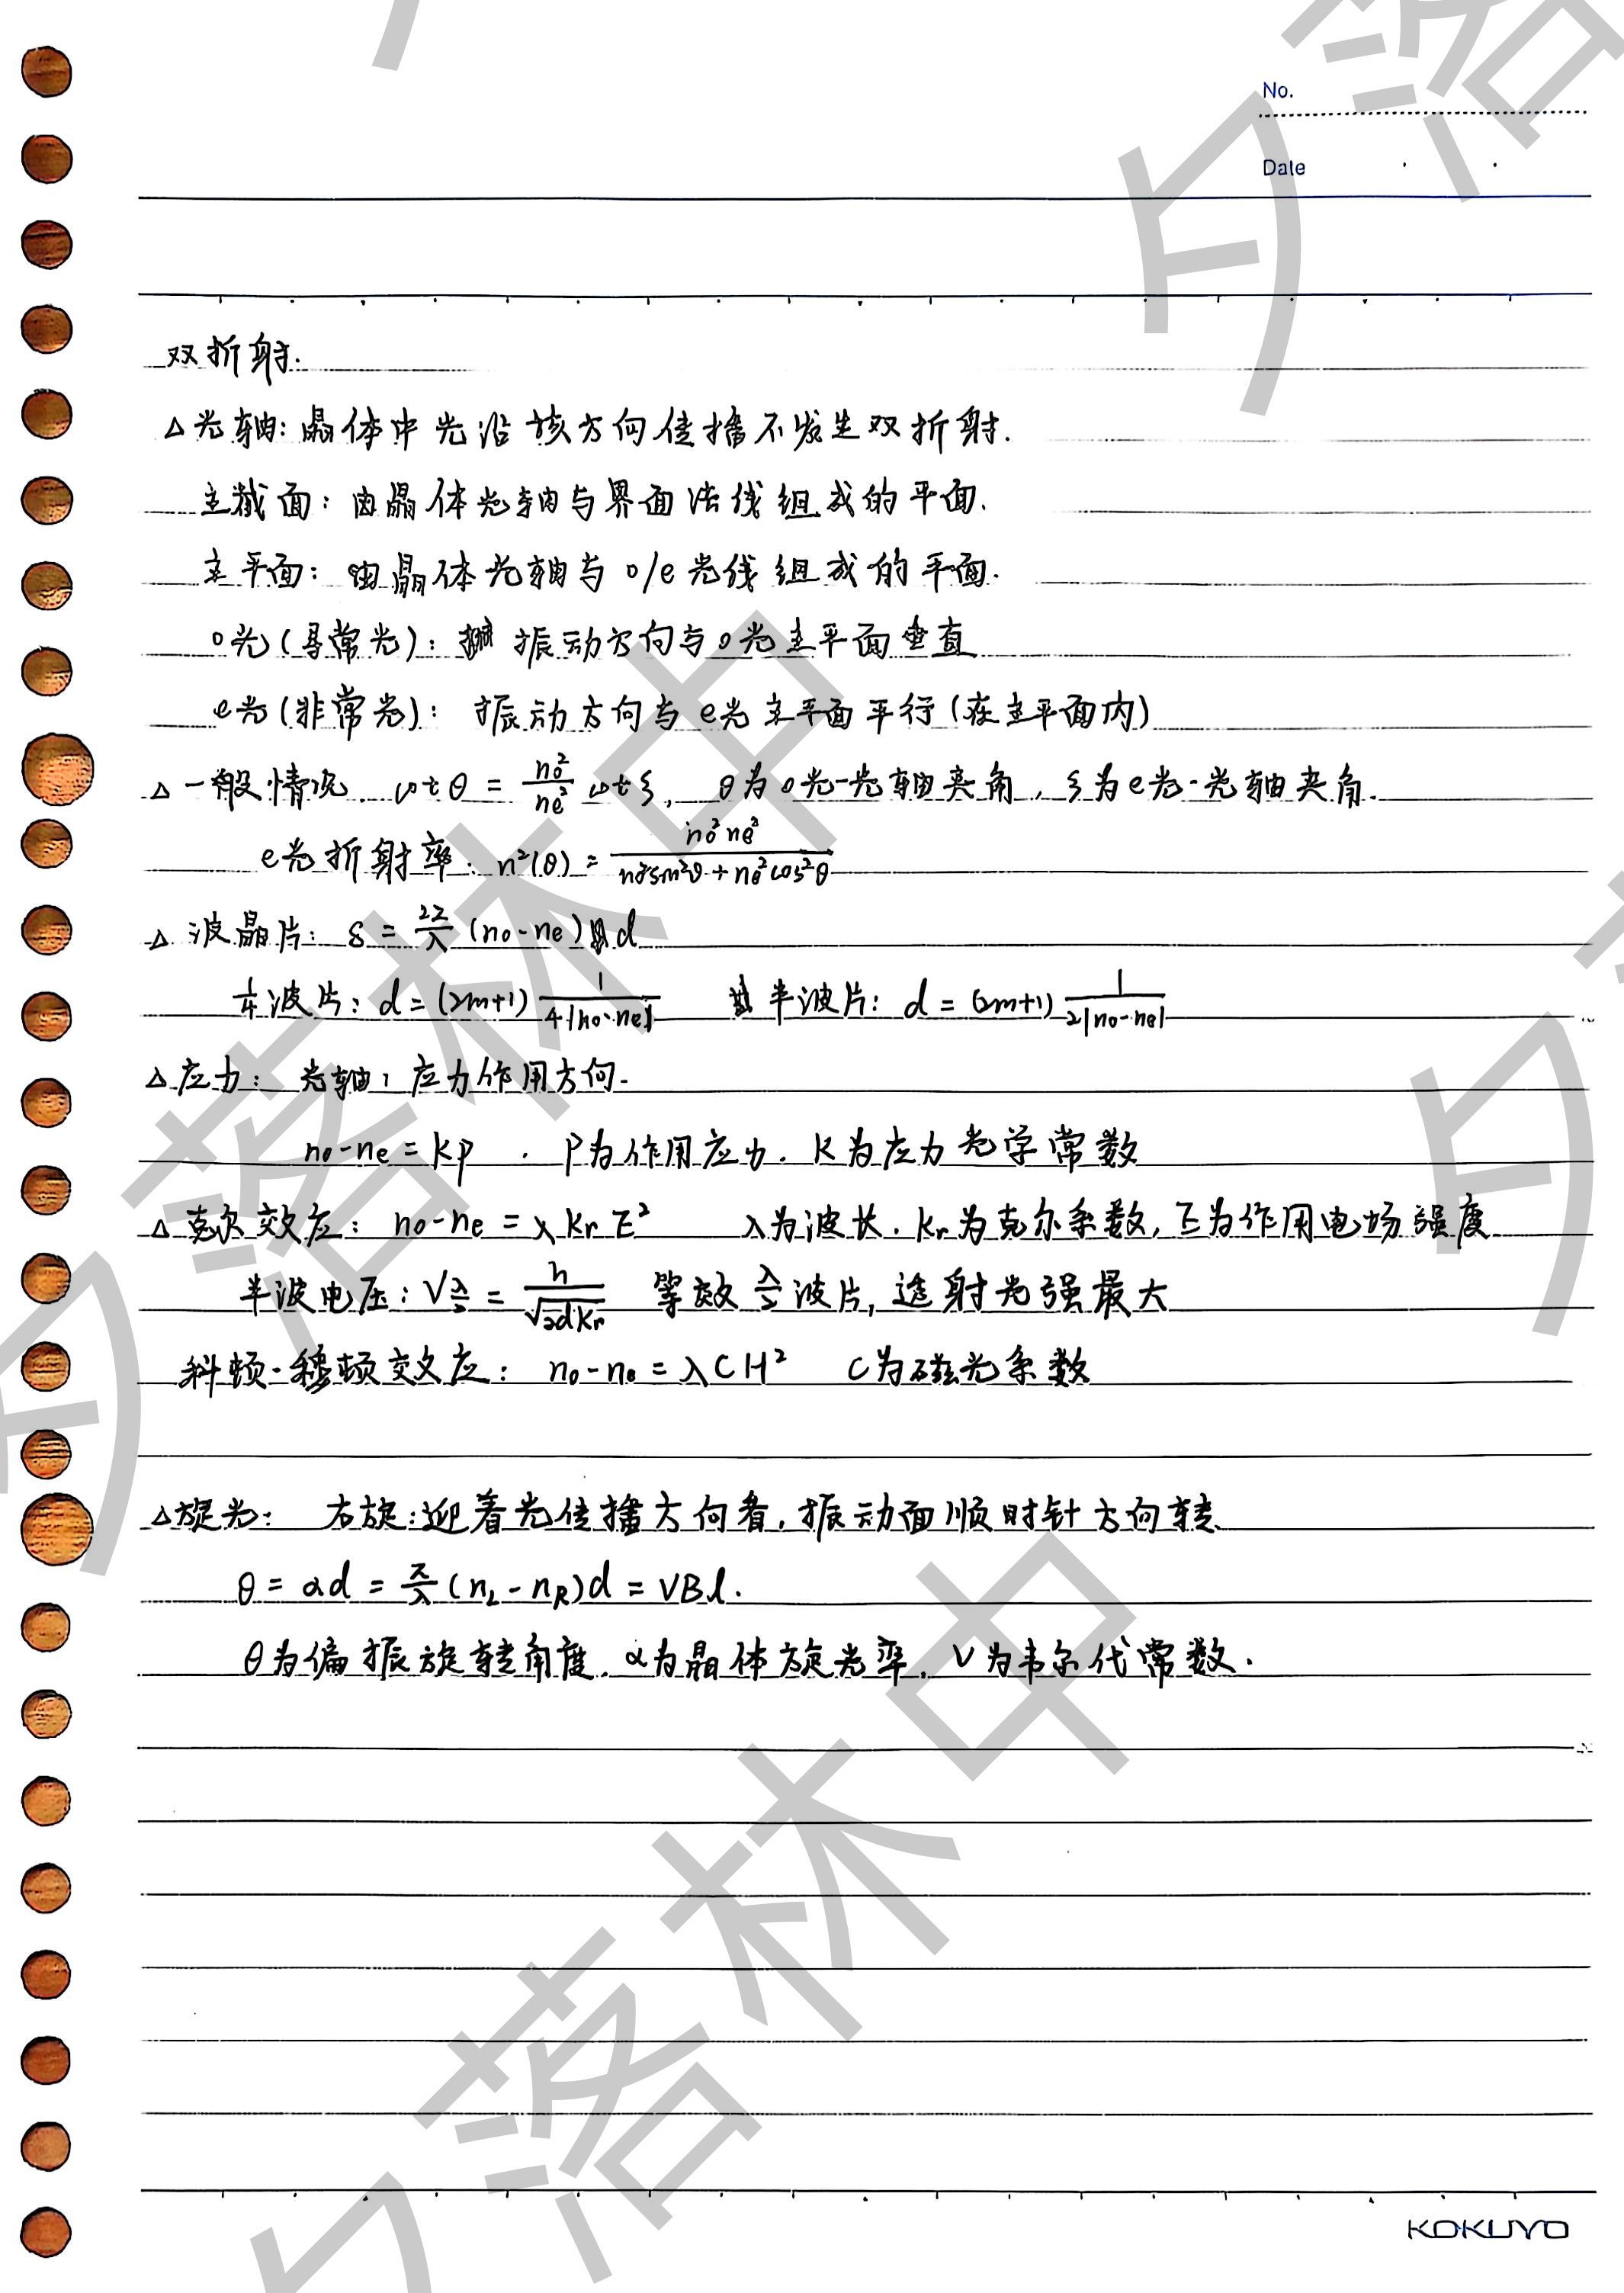 No.
Date
双折射.
△光轴: 晶体中光沿该方向传播不发生双折射.
主截面: 由晶体光轴与界面法线组成的平面.
主平面: 由晶体光轴与o/e光线组成的平面.
o光(寻常光): 振动方向与o光主平面垂直
e光(非常光): 振动方向与e光主平面平行(在主平面内)
△一般情况. cotθ = no²/ne² cotξ, θ为o光-光轴夹角, ξ为e光-光轴夹角.
e光折射率: n²(θ) = no²ne²/(no²sin²θ + ne²cos²θ)
△波晶片: δ = 2π/λ (no-ne)d
1/4波片: d = (2m+1) 1/(4|no-ne|) 半波片: d = (2m+1) 1/(2|no-ne|)
△应力: 光轴: 应力作用方向.
no-ne = Kp . P为作用应力. K为应力光学常数
△克尔效应: no-ne = λKrE² λ为波长. Kr为克尔系数, E为作用电场强度
半波电压: Vλ/2 = h/√(2dKr) 等效λ/2波片, 透射光强最大
科顿-穆顿效应: no-ne = λCH² C为磁光系数
△旋光: 右旋: 迎着光传播方向看, 振动面顺时针方向转
θ = αd = π/λ (nL-nR)d = VBl.
θ为偏振旋转角度. α为晶体旋光率. V为韦尔代常数.
KOKUYO
夕落林中
夕落林中